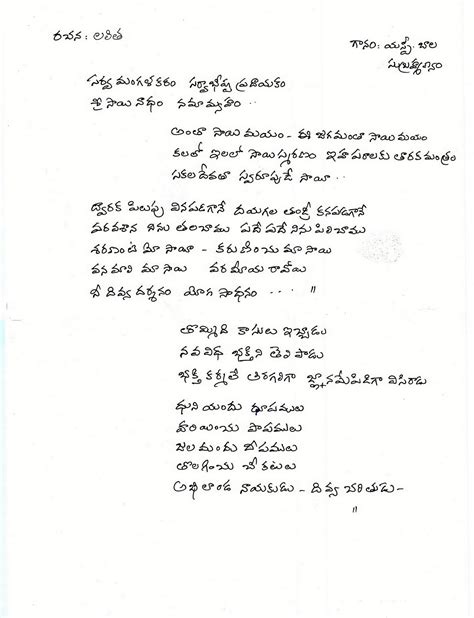 రచన: లలిత
గానం: యస్పీ. బాల
సుబ్రహ్మణ్యం
సర్వ మంగళకరం సర్వాభీష్ట ప్రదాయకం
శ్రీ సాయి నాథం నమామ్యహం ..
అంతా సాయి మయం - ఈ జగమంతా సాయి మయం
కలలో ఇలలో సాయి స్మరణం ఇహ పరాలకు తారక మంత్రం
సకల దేవతా స్వరూపుడే సాయీ ..
ద్వారక పిలుపు వినపడగానే దయగల తండ్రీ కనపడగానే
పరవశాన నిను తలచాము పదే పదే నిను పిలిచాము
శరణంటి మీ సాయీ - కరుణించు మా సాయి
వనమాలి మా సాయి వరమీయ రావోయి
నీ దివ్య దర్శనం యోగ సాధనం .. "
తొమ్మిది కాసులు ఇచ్చాడు
నవవిధ భక్తిని తెలిపాడు
భక్తి కర్మలే తిరగలిగా జ్ఞానమే పిడిగా విసిరాడు
ధుని యందు ధూపములు
హరియించు పాపములు
జలమందు దీపములు
తొలగించు చీకటులు
అఖిలాండ నాయకుడు - దివ్య చరితుడు -
"